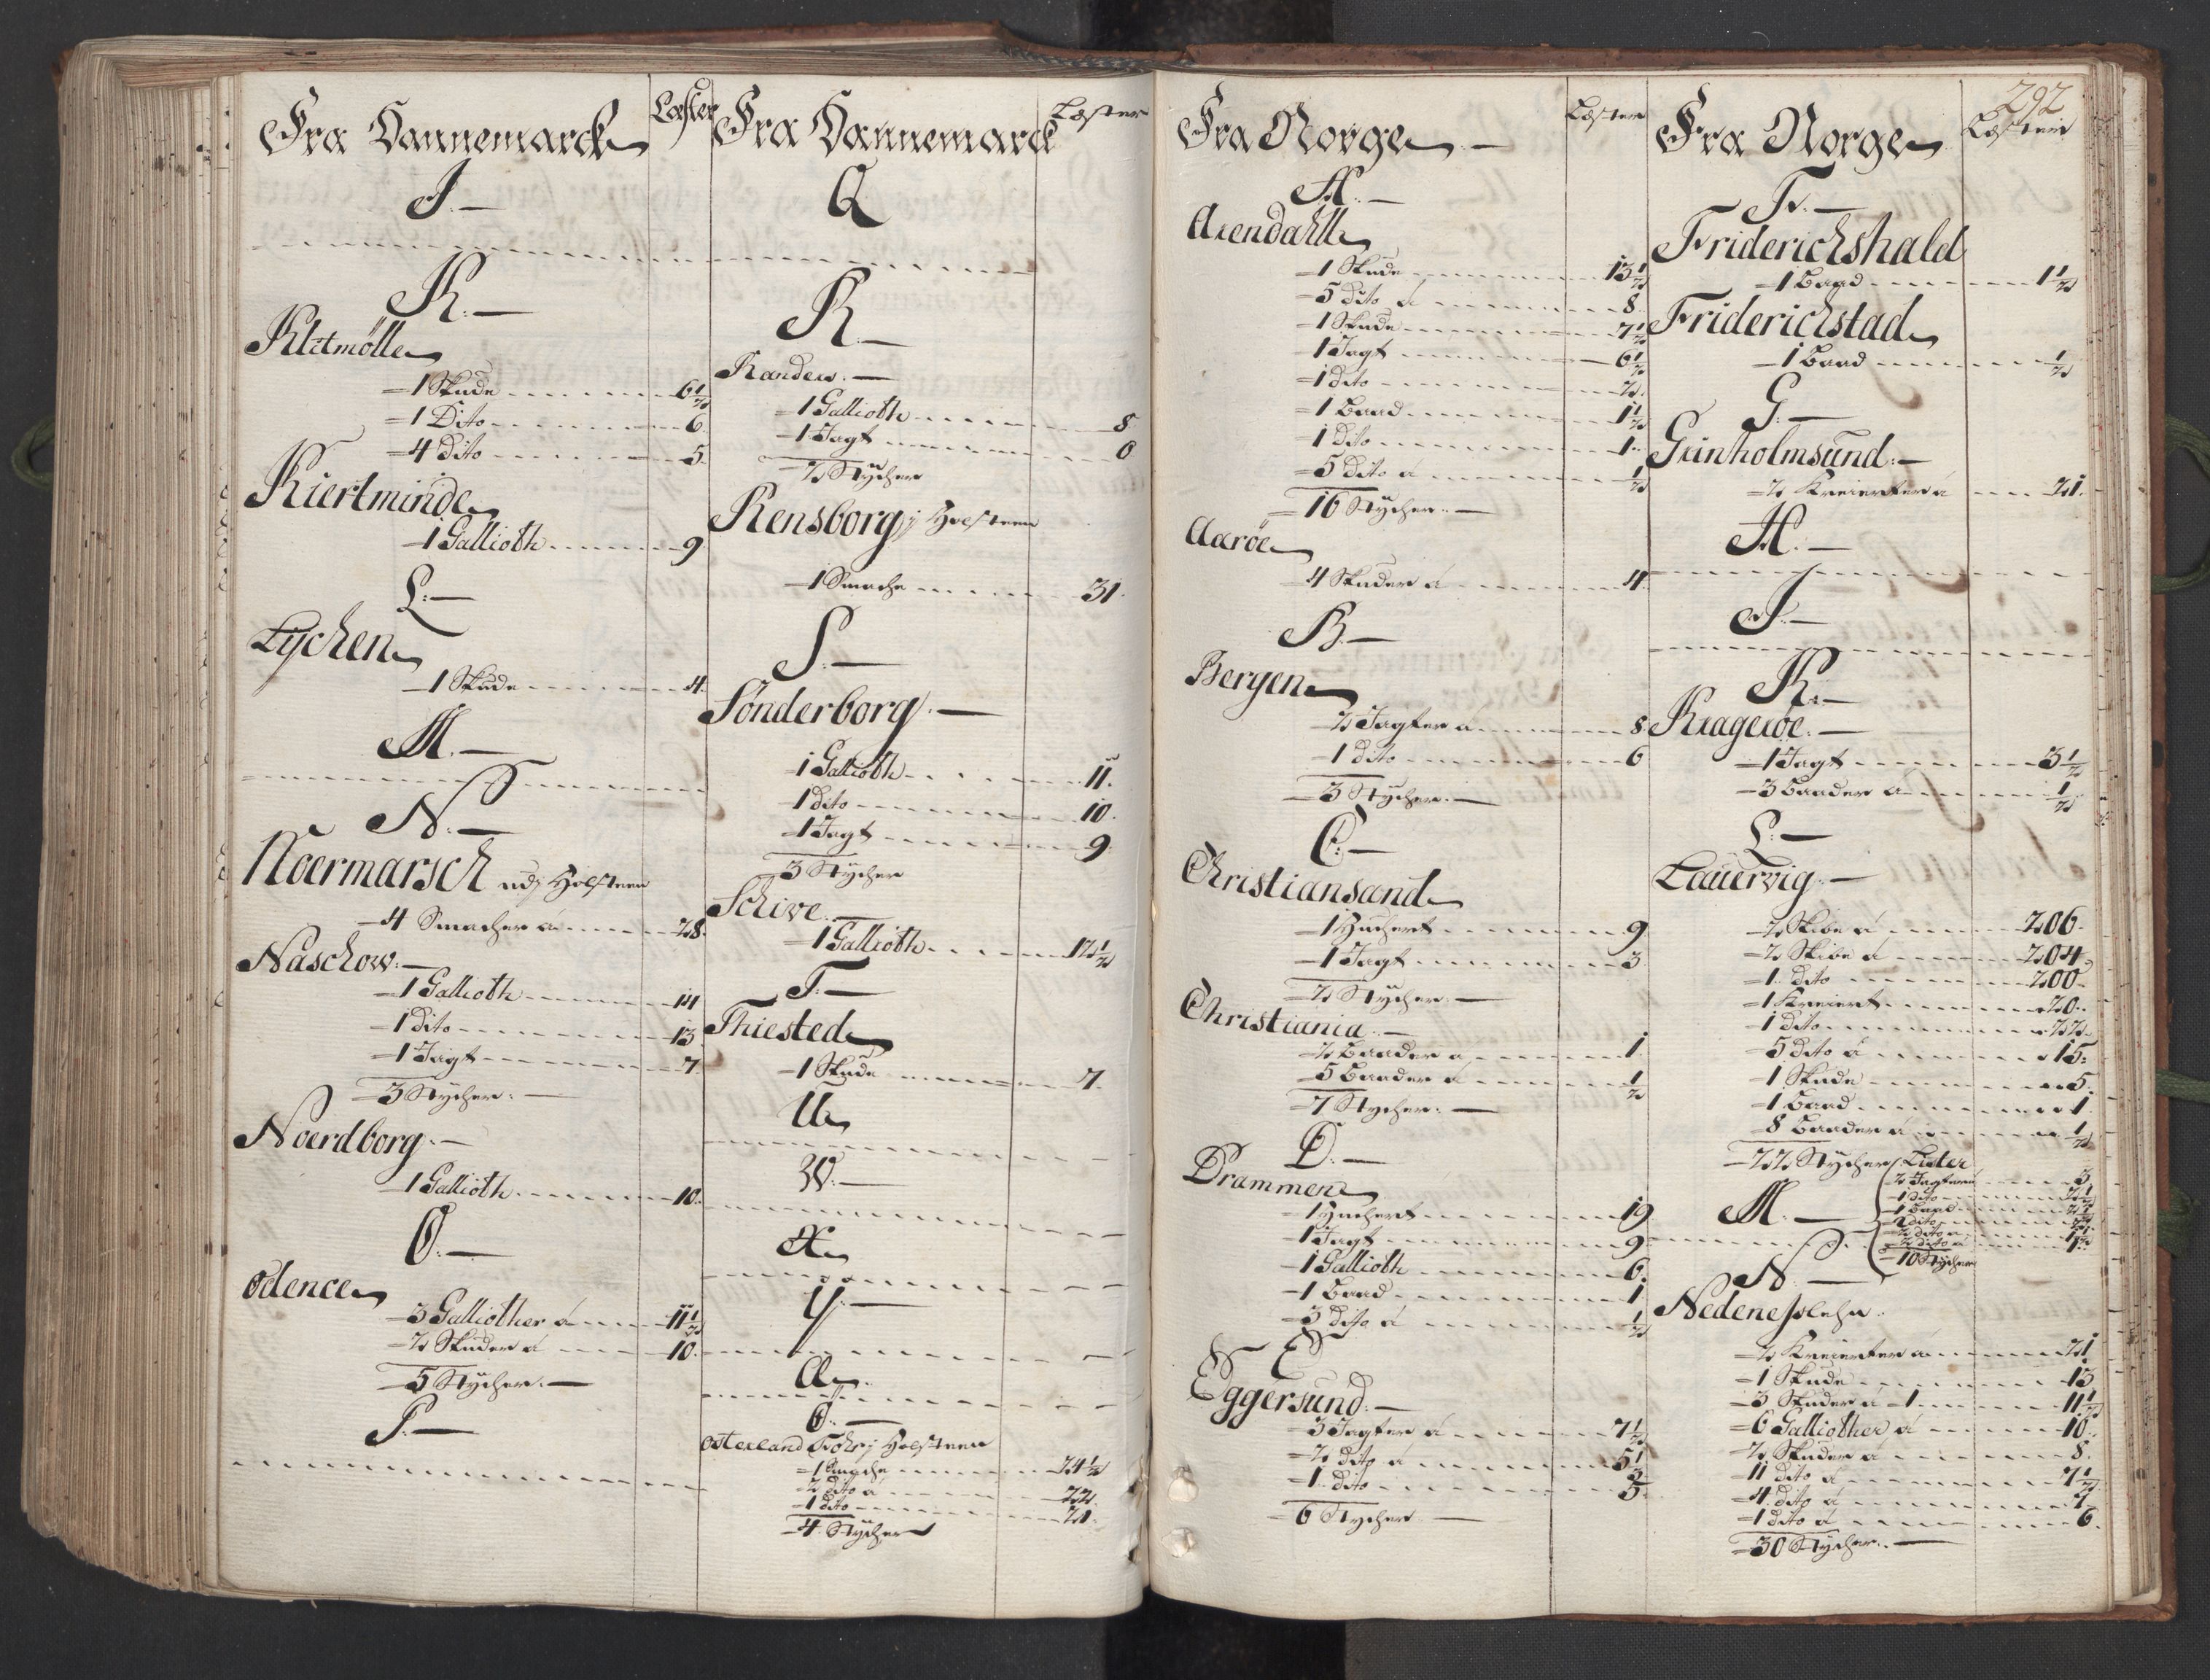 Fra Dannemarck
Læster
J.
K.
Klitmølle
1 Skude 6 1/2
1 Dito 6.
4 dito 5.
Kiertminde
1 Gallioth 9.
L:
Lychen
1 Skude 4.
M.
N:
Noermarsch udj Holsteen
4 Smacher á 28.
Naschow:
1 Gallioth 14
1 dito 13
1 Jagt 7.
3 Stycher:
Noerdborg.
1 Gallioth 10.
O:
Odence
3 Galliother á 11 1/2
2 Skuder á 10.
5 Stycher.
P.
Fra Dannemarck
Læster
Q
R.
Randers.
1 Gallioth 8
1 Jagt 6
2 Stycher
Rensborg j Holsteen
1 Smache 31.
S:
Sønderborg.
1 Gallioth 11.
1 dito 10.
1 Jagt 9.
3 Stycher
Schive.
1 Gallioth 12 1/2
T:
Thiested
1 Skude 7.
U
W:
X
Y:
A
O:
Osterland Föhr j Holsteen
1 Smache 24 1/2
2 dito á 22.
1 dito 21.
4 Stycher
Fra Norge
Læster
A:
Arendahll
1 Skude 13 1/2
5 dito á 8.
1 Skude 7 1/2
1 Jagt 6 1/2
1 dito 2.
1 Baad 1 1/2
1 dito 1.
5 dito á 1/2
16 Stycher.
Aarøe
4 Skuder á 4.
B:
Bergen
2 Jagter á 8
1 dito 6
3 Stycher.
C:
Christiansand
1 Huchert 9
1 Jagt 3.
2 Stycher.
Christiania.
2 Baader á 1.
5 Baader á 1/2
7 Stycher.
D:
Drammen
1 Huchert 19
1 Jagt 9.
1 Gallioth 6.
1 Baad 1
3 dito á 1/2
E
Eggersund:
3 Jagter á 7 1/2
2 dito á 5 1/2
1 dito 5.
6 Stycher
292
Fra Norge
Læster
F.
Friderichshald
1 Baad 1 1/2
Friderichstad
1 Baad 1/2
G:
Grinholmsund:
2 Kreierter á 21.
H.
J:
K:
Krageröe.
1 Jagt 3 1/2
3 Baader á 1/2
L:
Lauervig:
2 Skibe á 206.
2 Skibe á 204.
1 dito 200.
1 Kreiert 20.
1 dito 22.
5 dito á 15.
1 Skude 5.
1 Baad 1.
8 Baader á 1/2
22 Stycher
Lister
2 Jagter á 3
1 dito 2 1/2
1 Baad
2 dito
2 dito á
2 dito á
10 Stycher
M.
N.
Nedenes Lehn.
2 Kreierter á 21
1 Skude 13
3 Skuder á 1 11 1/2
6 Galliother á 10.
2 Skuder á 8.
11 dito á 7 1/2
4 dito á 7.
1 dito á 6.
30 Stycher.